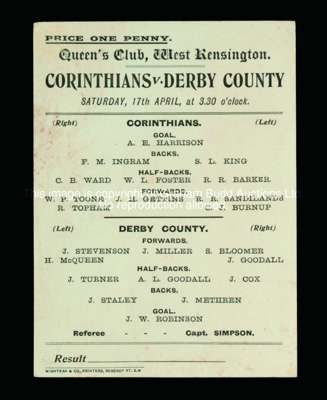 PRICE ONE PENNY.
Queen's Club, West Kensington.
CORINTHIANS v. DERBY COUNTY
SATURDAY, 17th APRIL, at 3.30 o'clock.
(Right) CORINTHIANS. (Left)
GOAL,
A. E. HARRISON
BACKS.
F. M. INGRAM S. L. KING
HALF-BACKS.
C. B. WARD W. L. FOSTER R. R. BARKER
This image is copyright Graham Budd Auctions Ltd
FORWARDS.
W. P. TOONE J. H. GETTINS R. R. SANDILANDS
reproduction
R. TOPHAM C. J. BURNUP
(Left) DERBY COUNTY. (Right)
FORWARDS.
J. STEVENSON J. MILLER S. BLOOMER
H. McQUEEN J. GOODALL
HALF-BACKS.
J. TURNER A. L. GOODALL J. COX
BACKS.
J. STALEY J. METHREN
GOAL.
J. W. ROBINSON
Referee - - - Capt. SIMPSON.
Result
WIGHTMAN & CO., PRINTERS, REGENCY ST. S.W